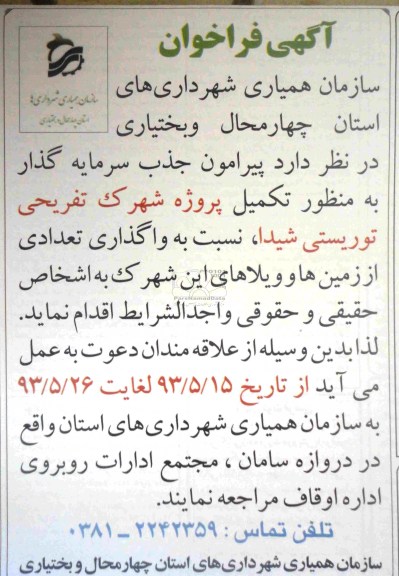 آگهی فراخوان
سازمان همیاری شهرداری‌ها
استان چهارمحال و بختیاری
سازمان همیاری شهرداری‌های
استان چهارمحال وبختیاری
در نظر دارد پیرامون جذب سرمایه گذار
به منظور تکمیل پروژه شهرک تفریحی
توریستی شیدا، نسبت به واگذاری تعدادی
از زمین ها و ویلاهای این شهرک به اشخاص
حقیقی و حقوقی واجدالشرایط اقدام نماید.
لذا بدین وسیله از علاقه مندان دعوت به عمل
می آید از تاریخ ۹۳/۵/۱۵ لغایت ۹۳/۵/۲۶
به سازمان همیاری شهرداری‌های استان واقع
در دروازه سامان ، مجتمع ادارات روبروی
اداره اوقاف مراجعه نمایند.
تلفن تماس : ۲۲۴۲۳۵۹ ـ ۰۳۸۱
سازمان همیاری شهرداری‌های استان چهارمحال و بختیاری